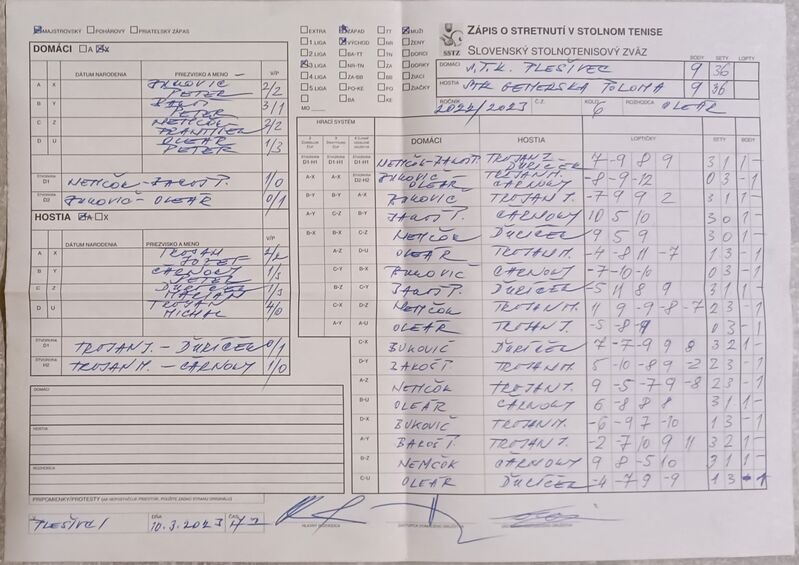 MAJSTROVSKÝ POHÁROVÝ PRIATEĽSKÝ ZÁPAS
DOMÁCI A X
DÁTUM NARODENIA PRIEZVISKO A MENO V/P
A X BUKOVIC PETER 2/2
B Y BAROŠ PETER 3/1
C Z NEMČOK FRANTIŠEK 2/2
D U OLEÁR PETER 1/3
ŠTVORHRA D1 NEMČOK-BAROŠ P. 1/0
ŠTVORHRA D2 BUKOVIČ-OLEÁR 0/1
HOSTIA A X
DÁTUM NARODENIA PRIEZVISKO A MENO V/P
A X TROJAN JOZEF 2/2
B Y ČARNOKY PETER 1/3
C Z ĎURÍČEK MARIAN 1/3
D U TROJAN MICHAL 4/0
ŠTVORHRA D1 TROJAN J. - ĎURÍČEK 0/1
ŠTVORHRA H2 TROJAN M. - ČARNOKY 1/0
DOMÁCI
HOSTIA
ROZHODCA
PRIPOMIENKY/PROTESTY
PLEŠIVEC DŇA 10.3.2023 ČAS 17
EXTRA ZÁPAD TT MUŽI
1.LIGA VÝCHOD NR ŽENY
2.LIGA BA-TT TN DORCI
3.LIGA NR-TN ZA DORKY
4.LIGA ZA-BB BB ŽIACI
5.LIGA PO-KE PO ŽIAČKY
BA KE
MO
ZÁPIS O STRETNUTÍ V STOLNOM TENISE
SSTZ SLOVENSKÝ STOLNOTENISOVÝ ZVÄZ
BODY SETY LOPTY
DOMÁCI PLEŠIVEC 9 36
HOSTIA GEMERSKÁ POLOMA 9 36
ROČNÍK 2022/2023 Č.Z. KOLO 6 ROZHODCA OLEÁR
HRACÍ SYSTÉM
DOMÁCI HOSTIA LOPTIČKY SETY BODY
NEMČOK-BAROŠ P. TROJAN J.-ĎURÍČEK 7 -9 8 9 3 1 1 -
BUKOVIČ-OLEÁR TROJAN M.-ČARNOKY -8 -9 -12 0 3 - 1
A-X B-Y A-X BUKOVIČ TROJAN J. -7 9 9 2 3 1 1 -
A-Y C-Z B-Y BAROŠ P. ČARNOKY 10 5 10 3 0 1 -
B-X B-X C-Z NEMČOK ĎURÍČEK 9 5 9 3 0 1 -
D-U OLEÁR TROJAN M. -4 -8 11 -7 1 3 - 1
C-Y B-X BUKOVIČ ČARNOKY -7 -10 -10 0 3 - 1
B-Z C-Y BAROŠ P. ĎURÍČEK -5 11 8 9 3 1 1 -
C-X D-Z NEMČOK TROJAN M. 11 9 -9 -8 -7 2 3 - 1
A-Y A-U OLEÁR TROJAN J. -5 -8 0 3 - 1
C-X BUKOVIČ ĎURÍČEK 7 -7 -9 9 8 3 2 1 -
D-Y BAROŠ P. TROJAN M. 5 -10 -8 9 -2 2 3 - 1
A-Z NEMČOK TROJAN J. 9 -5 -7 9 -8 2 3 - 1
B-U OLEÁR ČARNOKY 6 -8 8 8 3 1 1 -
D-X BUKOVIČ TROJAN M. -6 -9 7 -10 1 3 - 1
A-Y BAROŠ P. TROJAN J. -2 -7 10 9 11 3 2 1 -
B-Z NEMČOK ČARNOKY 9 8 -5 10 3 1 1 -
C-U OLEÁR ĎURÍČEK -4 -7 9 -9 1 3 - 1